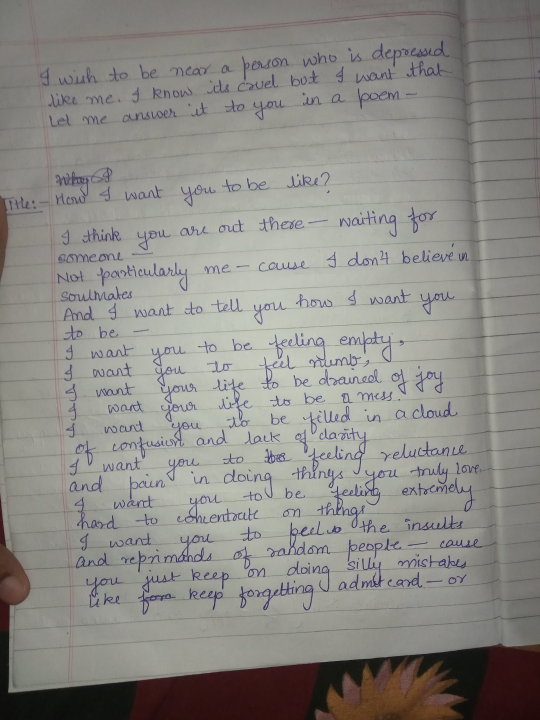 I wish to be near a person who is depressed
like me. I know its cruel but I want that
Let me answer it to you in a poem —
Title:- How I want you to be like?
I think you are out there — waiting for
someone —
Not particularly me — cause I don't believe in
soulmates
And I want to tell you how I want you
to be —
I want you to be feeling empty,
I want you to feel numb,
I want your life to be drained of joy
I want your life to be a mess.
I want you to be filled in a cloud
of confusion and lack of clarity
I want you to feeling reluctance
and pain in doing things you truly love.
I want you to be feeling extremely
hard to concentrate on things
I want you to the insults
and reprimands of random people — cause
you just keep on doing silly mistakes
like keep forgetting admit card — or